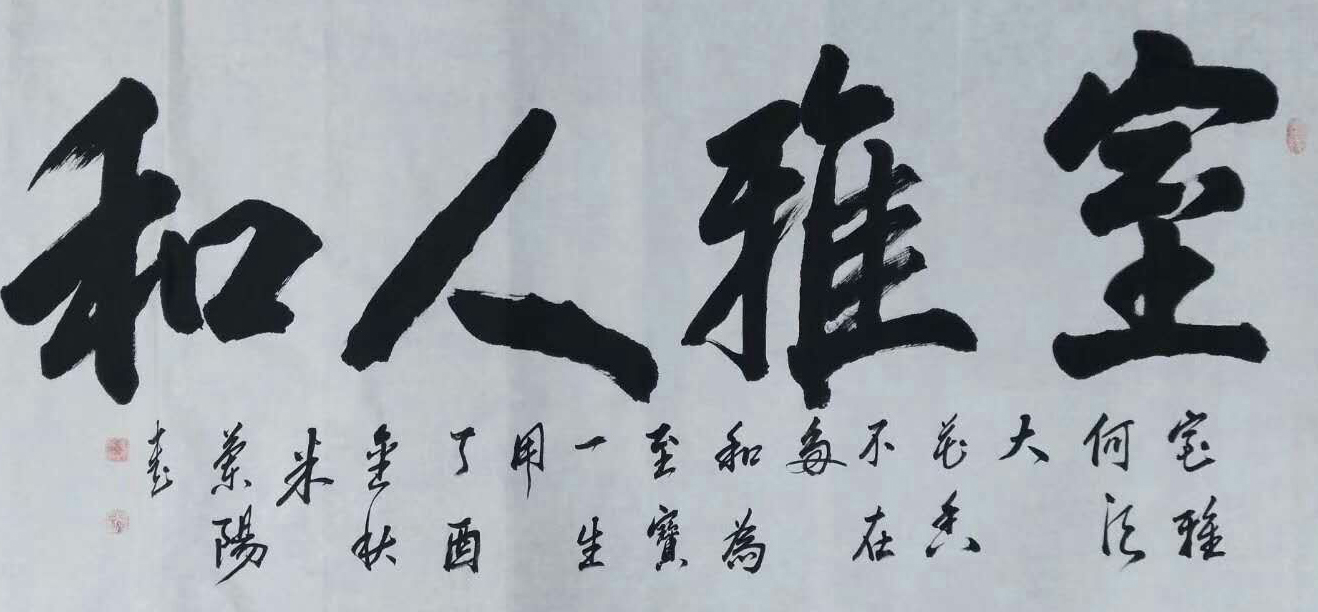 室雅人和
室雅
何须
大
花香
不在
多
和为
至寶
一生
用
丁酉
金秋
米
蘭陽
書